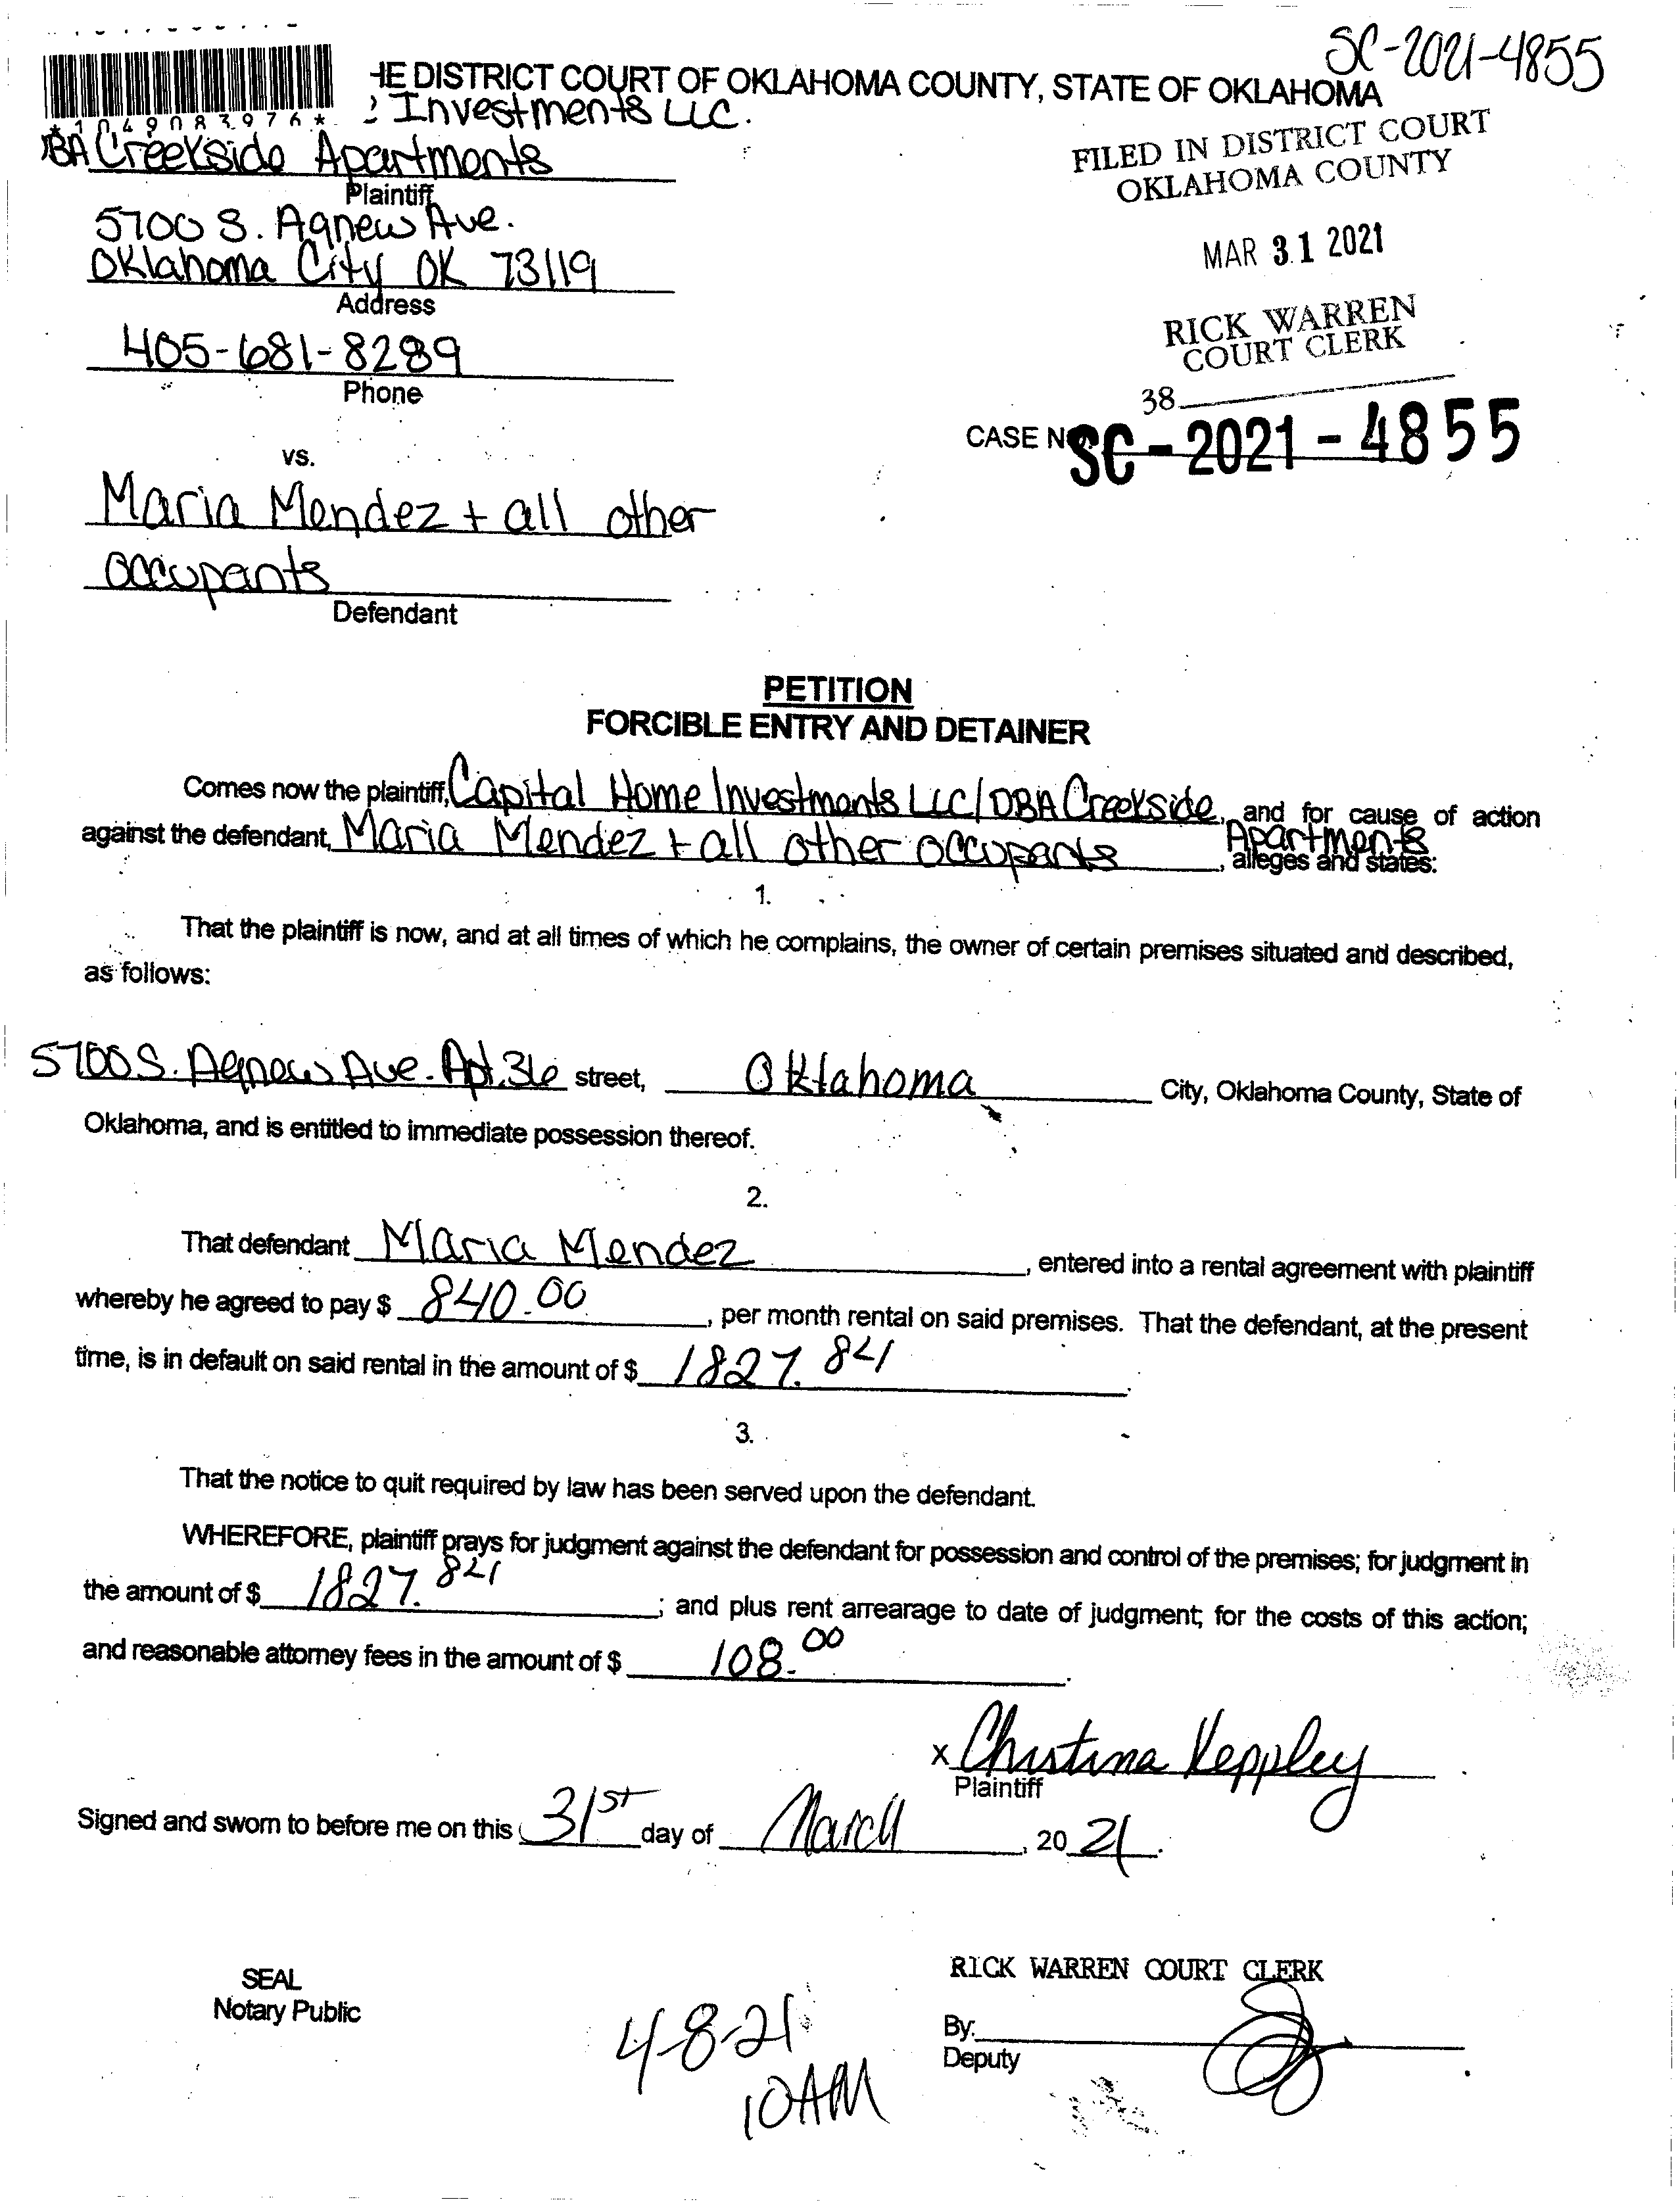 SC-2021-4855
HE DISTRICT COURT OF OKLAHOMA COUNTY, STATE OF OKLAHOMA
*1049083976*
Investments LLC.
DBA Creekside Apartments
Plaintiff
5700 S. Agnew Ave.
Oklahoma City OK 73119
Address
405-681-8289
Phone
FILED IN DISTRICT COURT
OKLAHOMA COUNTY
MAR 31 2021
RICK WARREN
COURT CLERK
38
CASE NO. SC-2021-4855
vs.
Maria Mendez + all other
occupants
Defendant
PETITION
FORCIBLE ENTRY AND DETAINER
Comes now the plaintiff, Capital Home Investments LLC/DBA Creekside, and for cause of action
Apartments
against the defendant, Maria Mendez + all other occupants, alleges and states:
1.
That the plaintiff is now, and at all times of which he complains, the owner of certain premises situated and described,
as follows:
5700 S. Agnew Ave. Apt. 36 street, Oklahoma City, Oklahoma County, State of
Oklahoma, and is entitled to immediate possession thereof.
2.
That defendant Maria Mendez, entered into a rental agreement with plaintiff
whereby he agreed to pay $ 840.00, per month rental on said premises. That the defendant, at the present
time, is in default on said rental in the amount of $ 1827.84.
3.
That the notice to quit required by law has been served upon the defendant.
WHEREFORE, plaintiff prays for judgment against the defendant for possession and control of the premises; for judgment in
the amount of $ 1827.84; and plus rent arrearage to date of judgment; for the costs of this action;
and reasonable attorney fees in the amount of $ 108.00.
x Christina Keppley
Plaintiff
Signed and sworn to before me on this 31st day of March, 2021.
SEAL
Notary Public
RICK WARREN COURT CLERK
By:
Deputy
4-8-21
10AM